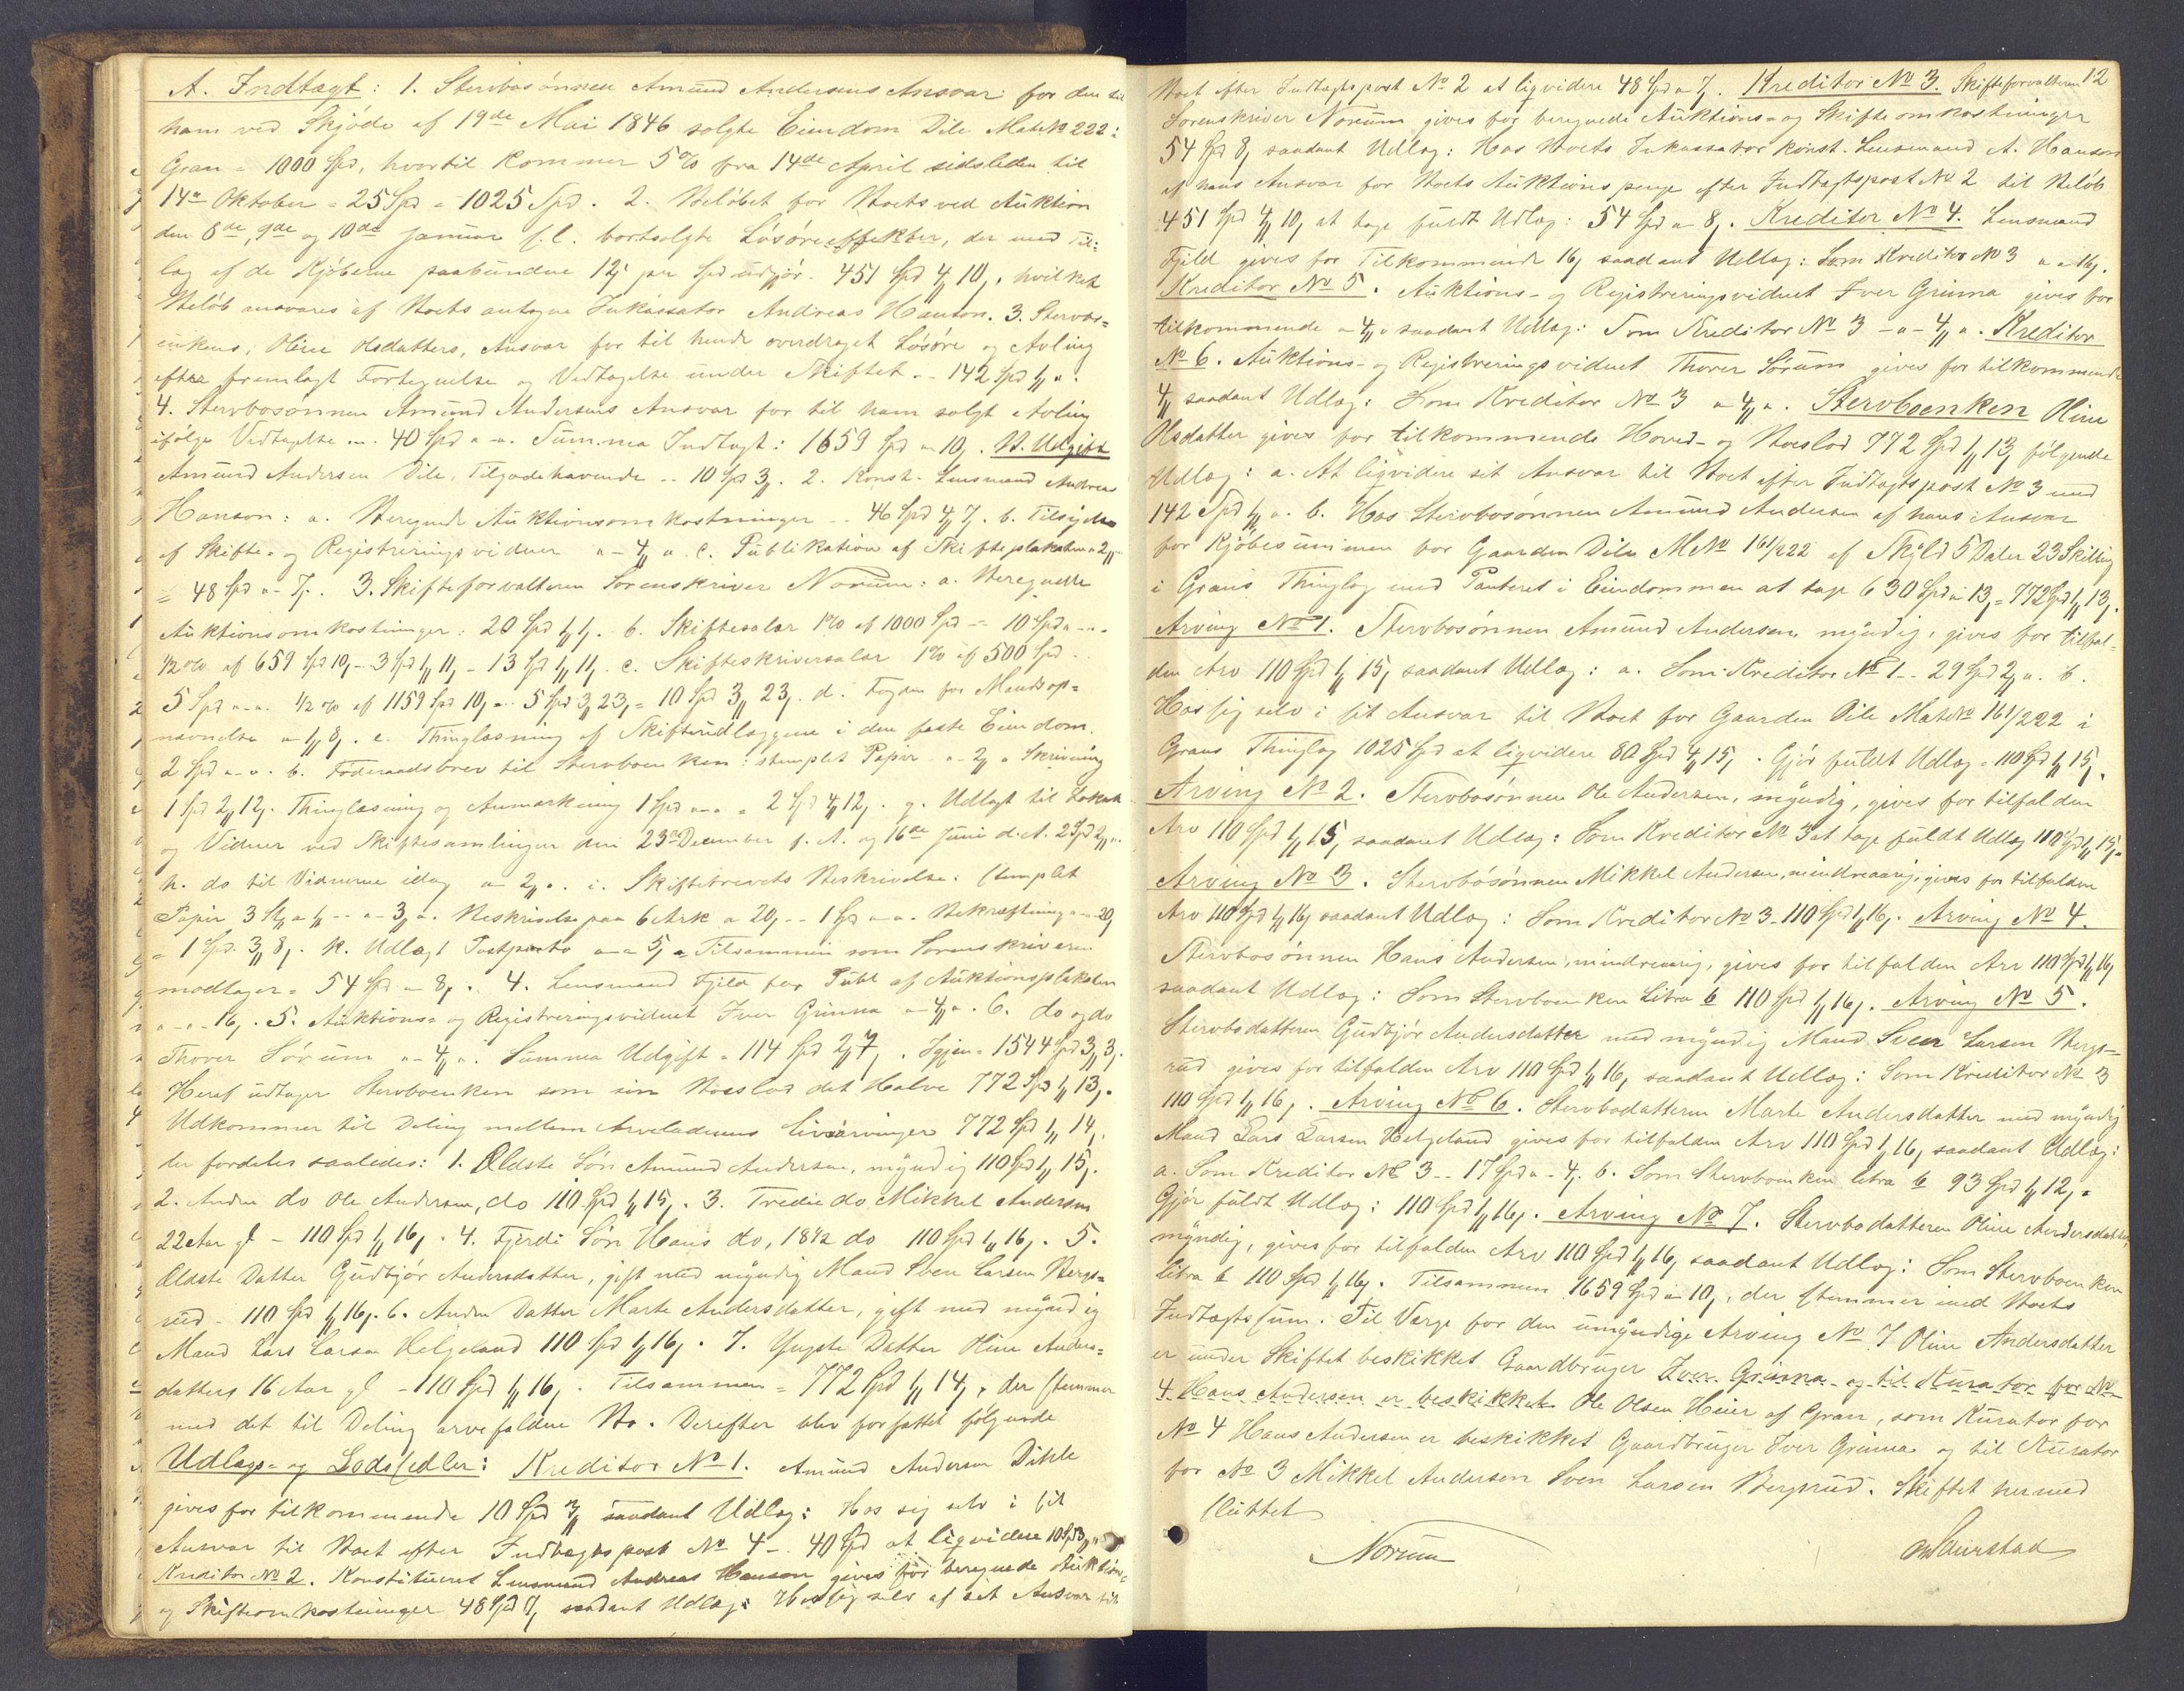 A. Indtægt: 1. Stervbosønnen Amund Andersens Ansvar for den til
ham ved Skjøde af 19de Mai 1846 solgte Eiendom Dile Mat. No 222:
Gran = 1000 Spd, hvortil kommer 5% fra 14de April sidstleden til
14de Oktober = 25 Spd = 1025 Spd. 2. Beløbet for Boets ved Auktion
den 8de, 9de og 10de Januar f.l. bortsolgte Løsøreeffekter, der med Til-
læg af de Kjøberne paabundne 12ß pr Spd udgjør - 451 Spd 4 10, hvilket
Beløb ansvares af Boets antagne Inkassator Andreas Hanson. 3. Stervbo-
enkens, Oline Olsdatters, Ansvar for til hende overdraget Løsøre og Avling
efter fremlagt Fortegnelse og Vedtagelse under Skiftet - 142 Spd 1 ".
4. Stervbosønnen Amund Andersens Ansvar for til ham solgt Avling
ifølge Vedtagelse - 40 Spd " - ". Summa Indtægt: 1659 Spd " 10. B. Udgift
Amund Andersen Dile, Tilgodehavende - 10 Spd 3. 2. Konst. Lensmand Andreas
Hanson: a. Beregnede Auktionsomkostninger - 46 Spd 4 7. b. Tilsigelse
af Skifte- og Registreringsvidner " - 4 " c. Publikation af Skifteplakaten " 2 "
= 48 Spd " - 7. 3. Skifteforvalteren Sorenskriver Norum: a. Beregnede
Auktionsomkostninger: 20 Spd 1 1. b. Skiftesalær 1% af 1000 Spd = 10 Spd " - "
1/2% af 659 Spd 10 - 3 Spd 1 11 - 13 Spd 1 11. c. Skifteskriversalær 1% af 500 Spd -
5 Spd " - ". 1/2% af 1159 Spd 10 " - 5 Spd 3 23 = 10 Spd 3 23. d. Fogden for Mandsop-
nævnelse " 1 8. e. Thinglæsning af Skifteudlæggene i den faste Eiendom.
2 Spd " - ". f. Føderaadsbrev til Stervboenken: stemplet Papir " - 2 " Skrivning
1 Spd 2 12. Thinglæsning og Anmærkning 1 Spd " - " = 2 Spd 4 12. g. Udlagt til Lokale
og Vidner ved Skiftesamlingen den 23de December f. A. og 16de Juni d. A. 2 Spd 2 "
h. do til Vidnerne idag " 2 ". i. Skiftebrevets Beskrivelse: stemplet
Papir 3 St a 1 - " - 3 ". Beskrivelse paa 6 Ark a 20 - 1 Spd " - ". Bekræftning " - 20
= 1 Spd 3 8. k. Udlagt Postporto " - " 5 = Tilsammen som Sorenskriveren
modtager = 54 Spd " 8. 4. Lensmand Fjeld for Publ af Auktionsplakaten
" - " 16. 5. Auktions- og Registreringsvidnet Iver Grinna " 4 ". 6. do og do
Thorer Sørum " - 4 ". Summa Udgift = 114 Spd 2 7. Igjen = 1544 Spd 3 3.
Heraf udtager Stervboenken som sin Boeslod det Halve 772 Spd 1 13.
Udkommer til Deling mellem Arveladerens Livsarvinger 772 Spd 1 14,
der fordeles saaledes: 1. Ældste Søn Amund Andersen, myndig 110 Spd 1 15.
2. Anden do Ole Andersen, do 110 Spd 1 15. 3. Tredie do Mikkel Andersen
22 Aar gl - 110 Spd 1 16. 4. Fjerde Søn Hans do, 18 1/2 do 110 Spd 1 16. 5.
Ældste Datter Gudbjør Andersdatter, gift med myndig Mand Sven Larsen Bergs-
rud - 110 Spd 1 16. 6. Anden Datter Marte Andersdatter, gift med myndig
Mand Lars Larsen Helgeland 110 Spd 1 16. 7. Yngste Datter Oline Anders-
datters 16 Aar gl - 110 Spd 1 16. Tilsammen = 772 Spd 1 14, der stemmer
med det til Deling arvefaldne Bo. Derefter blev forfattet følgende
Udlægs- og Lodsedler: Kreditor No 1. Amund Andersen Dihle
gives for tilkommende 10 Spd 3 saadant Udlæg: Hos sig selv i sit
Ansvar til Boet efter Indtægtspost No 4 - 40 Spd at liqvidere 10 Spd 3 "
Kreditor No 2. Konstitueret Lensmand Andreas Hanson gives for beregnede Auktions-
og Skifteomkostninger 48 Spd 7 saadant Udlæg: Hos sig selv af sit Ansvar til
12
Boet efter Indtægtspost No 2 at liqvidere 48 Spd " 7. Kreditor No 3. Skifteforvalteren
Sorenskriver Norum gives for beregnede Auktions- og Skifteomkostninger
54 Spd 8 saadant Udlæg: Hos Boets Inkassator konst. Lensmand A. Hanson
af hans Ansvar for Boets Auktionspenge efter Indtægtspost No 2 til Beløb
451 Spd 4 10, at tage fuldt Udlæg: 54 Spd " 8. Kreditor No 4. Lensmand
Fjeld gives for Tilkommende 16 saadant Udlæg: Som Kreditor No 3 " " 16.
Kreditor No 5. Auktions- og Registreringsvidnet Iver Grinna gives for
tilkommende " 4 " saadant Udlæg: Som Kreditor No 3 - " - 4 ". Kreditor
No 6. Auktions- og Registreringsvidnet Thorer Sørum gives for tilkommende
4 saadant Udlæg: Som Kreditor No 3 " 4 ". Stervboenken Oline
Olsdatter gives for tilkommende Hoved- og Boeslod 772 Spd 1 13 følgende
Udlæg: a. At liqvidere sit Ansvar til Boet efter Indtægtspost No 3 med
142 Spd 1 ". b. Hos Stervbosønnen Amund Andersen af hans Ansvar
for Kjøbesummen for Gaarden Dile M No 161/222 af Skyld 5 Daler 23 Skilling
i Grans Thinglag med Panteret i Eiendommen at tage 630 Spd " 13 = 772 Spd 1 13.
Arving No 1. Stervbosønnen Amund Andersen, myndig, gives for tilfal-
den Arv 110 Spd 1 15 saadant Udlæg: a. Som Kreditor No 1 - 29 Spd 2 ". b.
Hos sig selv i sit Ansvar til Boet for Gaarden Dile Mat. No 161/222 i
Grans Thinglag 1025 Spd at liqvidere 80 Spd 4 15. Gjør fuldt Udlæg = 110 Spd 1 15.
Arving No 2. Stervbosønnen Ole Andersen, myndig, gives for tilfalden
Arv 110 Spd 1 15 saadant Udlæg: Som Kreditor No 3 at tage fuldt Udlæg 110 Spd 1 15.
Arving No 3. Stervbosønnen Mikkel Andersen, mindreaarig, gives for tilfalden
Arv 110 Spd 1 16 saadant Udlæg: Som Kreditor No 3 - 110 Spd 1 16. Arving No 4.
Stervbosønnen Hans Andersen, mindreaarig, gives for tilfalden Arv 110 Spd 1 16
saadant Udlæg: Som Stervboenken Litra b 110 Spd 1 16. Arving No 5.
Stervbodatteren Gudbjør Andersdatter med myndig Mand Sven Larsen Bergs-
rud gives for tilfalden Arv 110 Spd 1 16, saadant Udlæg: Som Kreditor No 3
110 Spd 1 16. Arving No 6. Stervbodatteren Marte Andersdatter med myndig
Mand Lars Larsen Helgeland gives for tilfalden Arv 110 Spd 1 16, saadant Udlæg:
a. Som Kreditor No 3 - 17 Spd " - 4. b. Som Stervboenken litra b 93 Spd 1 12 =
Gjør fuldt Udlæg: 110 Spd 1 16. Arving No 7. Stervbodatteren Oline Andersdatter,
myndig, gives for tilfalden Arv 110 Spd 1 16, saadant Udlæg: Som Stervboenken
litra b 110 Spd 1 16. Tilsammen 1659 Spd " 10, der stemmer med Boets
Indtægtssum. Til Værge for den umyndige Arving No 7 Oline Andersdatter
er under Skiftet beskikket Gaardbruger Iver Grinna og til Kurator for No
4 Hans Andersen er beskikket Ole Olsen Heier af Gran, som Kurator for
No 4 Hans Andersen er beskikket Gaardbruger Iver Grinna og til Kurator
for No 3 Mikkel Andersen Sven Larsen Bergsrud. Skiftet hermed
sluttet
Norum